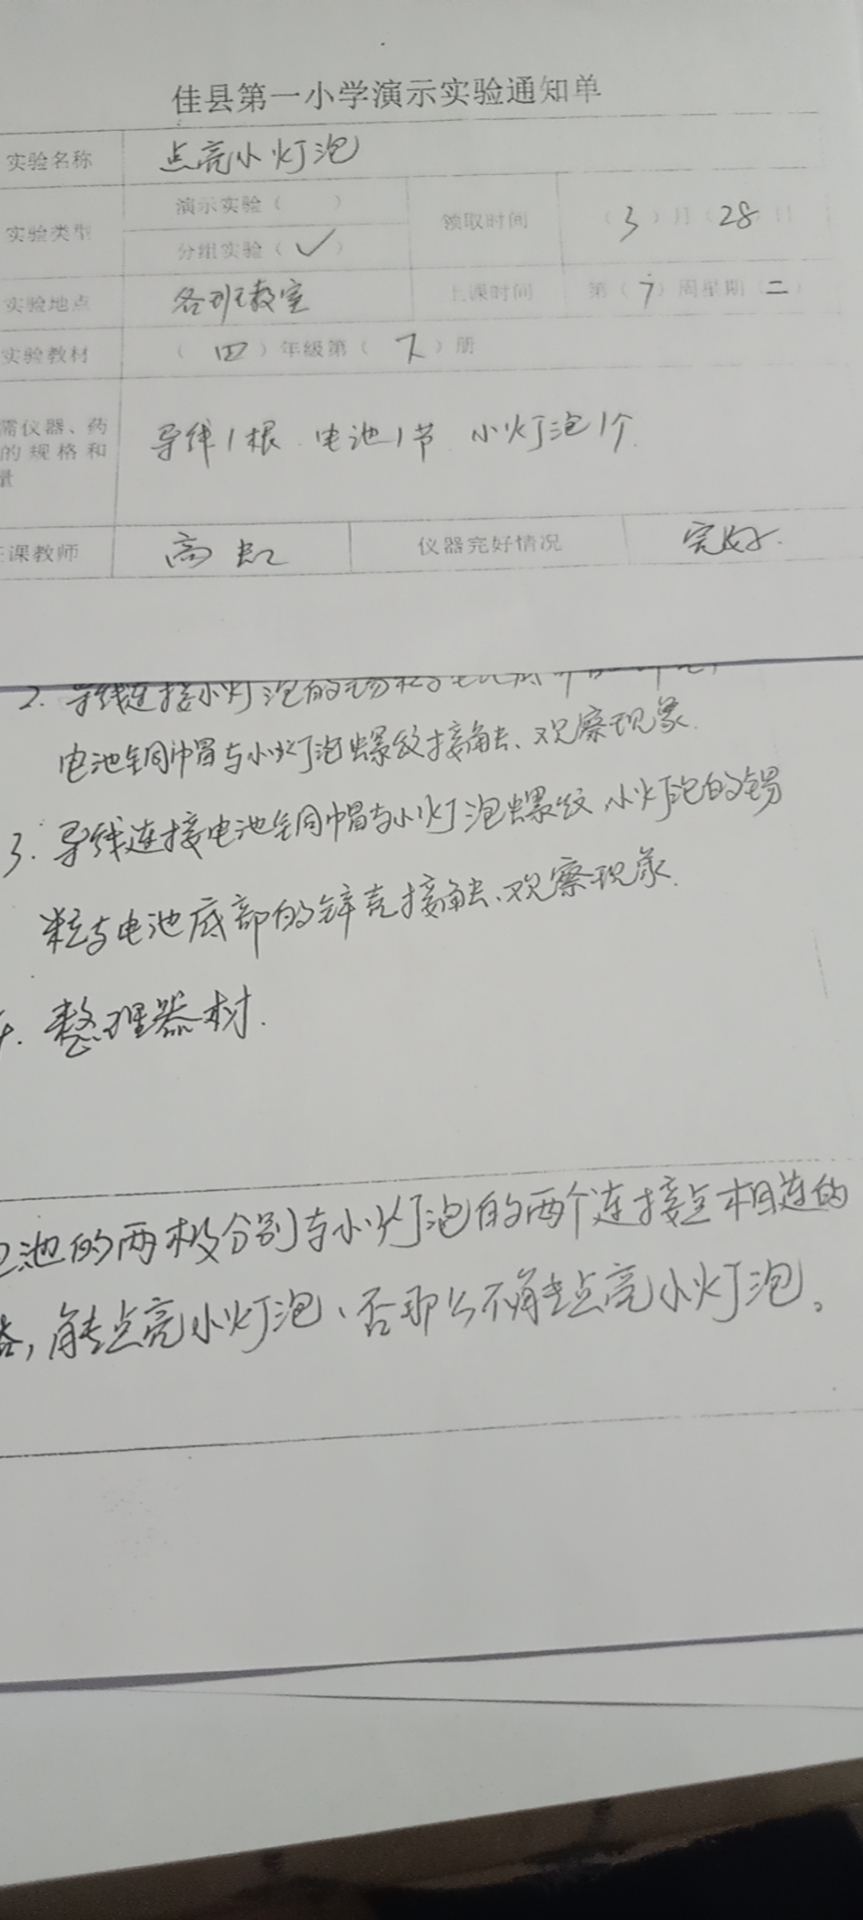 佳县第一小学演示实验通知单
实验名称 点亮小灯泡
实验类型 演示实验（ ） 领取时间 （3）月（28）日
分组实验（✓）
实验地点 各班教室 上课时间 第（7）周星期（二）
实验教材 （四）年级第（下）册
需仪器、药
的规格和
量
导线1根 电池1节 小灯泡1个
课教师 高 仪器完好情况 完好.
2. 导线连接小灯泡的锡粒与电池
电池铜帽与小灯泡螺纹接触、观察现象.
3. 导线连接电池铜帽与小灯泡螺纹、小灯泡的锡
粒与电池底部的锌壳接触、观察现象.
4. 整理器材.
池的两极分别与小灯泡的两个连接点相连的
, 能点亮小灯泡、否那么不能点亮小灯泡。